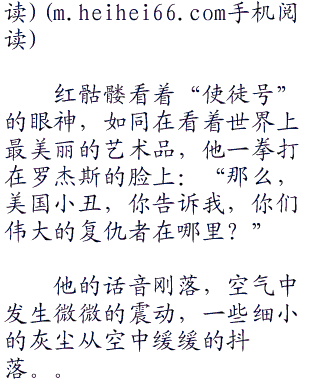 读)(m.heihei66.com手机阅
读)
红骷髅看着“使徒号”
的眼神，如同在看着世界上
最美丽的艺术品，他一拳打
在罗杰斯的脸上：“那么，
美国小丑，你告诉我，你们
伟大的复仇者在哪里？”
他的话音刚落，空气中
发生微微的震动，一些细小
的灰尘从空中缓缓的抖
落。。